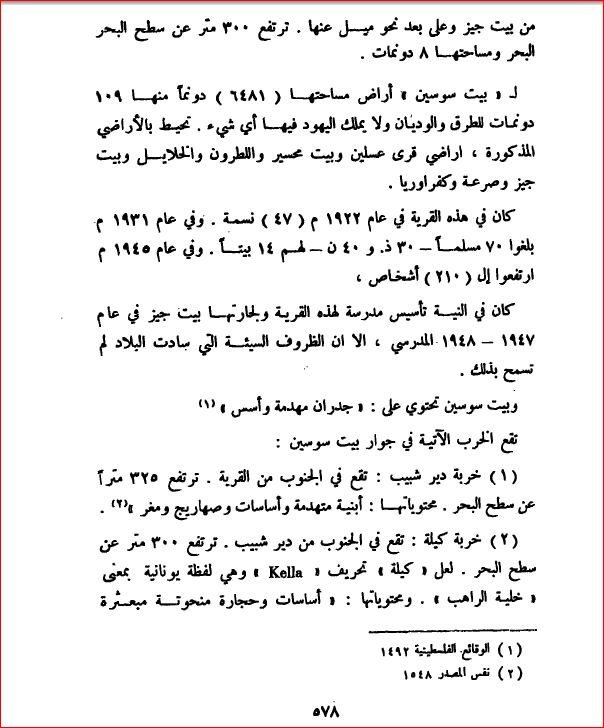 من بيت جيز وعلى بعد نحو ميل عنها . ترتفع ٣٠٠ متر عن سطح البحر
البحر ومساحتها ٨ دونمات .
لـ « بيت سوسين » أراض مساحتها ( ٦٤٨١ ) دونماً منها ١٠٩
دونمات للطرق والوديان ولا يملك اليهود فيها أي شيء . تحيط بالأراضي
المذكورة ، اراضي قرى عسلين وبيت محسير واللطرون والخلايل وبيت
جيز وصرعة وكفراوريا .
كان في هذه القرية في عام ١٩٢٢ م ( ٤٧ ) نسمة . وفي عام ١٩٣١ م
بلغوا ٧٠ مسلماً – ٣٠ ذ. و ٤٠ ن – لهم ١٤ بيتاً . وفي عام ١٩٤٥ م
ارتفعوا إل ( ٢١٠ ) أشخاص ،
كان في النية تأسيس مدرسة لهذه القرية ولجارتها بيت جيز في عام
١٩٤٧ – ١٩٤٨ المدرسي ، الا ان الظروف السيئة التي سادت البلاد لم
تسمح بذلك .
وبيت سوسين تحتوي على : « جدران مهدمة وأسس » (١)
تقع الخرب الآتية في جوار بيت سوسين :
( ١ ) خربة دير شبيب : تقع في الجنوب من القرية . ترتفع ٣٢٥ متراً
عن سطح البحر . محتوياتها : أبنية متهدمة وأساسات وصهاريج ومغر »(٢) .
( ٢ ) خربة كيلة : تقع في الجنوب من دير شبيب . ترتفع ٣٠٠ متر عن
سطح البحر . لعل « كيلة » تحريف « Kella » وهي لفظة يونانية بمعنى
« خلية الراهب » . ومحتوياتها : « أساسات وحجارة منحوتة مبعثرة
( ١ ) الوقائع الفلسطينية ١٤٩٢
( ٢ ) نفس المصدر ١٥٤٨
٥٧٨